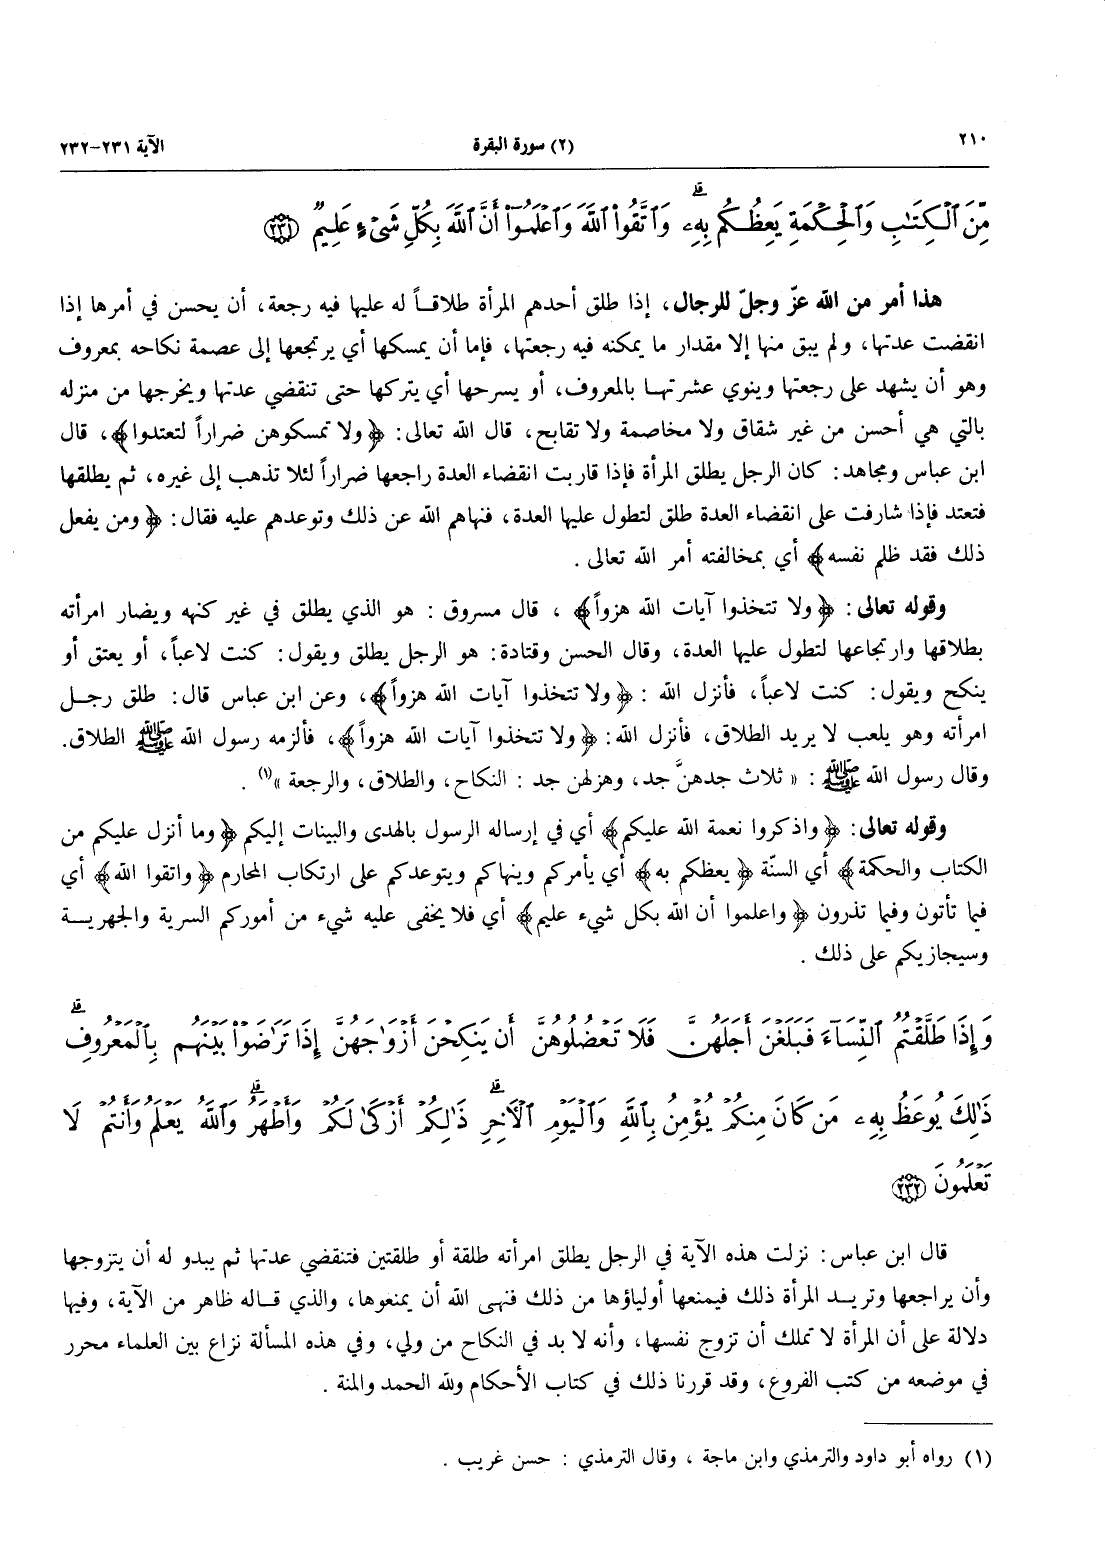 ٢١٠
(٢) سورة البقرة
الآية ٢٣١-٢٣٢
مِّنَ ٱلْكِتَٰبِ وَٱلْحِكْمَةِ يَعِظُكُم بِهِۦ ۚ وَٱتَّقُوا۟ ٱللَّهَ وَٱعْلَمُوٓا۟ أَنَّ ٱللَّهَ بِكُلِّ شَىْءٍ عَلِيمٌ ﴿٢٣١﴾
هذا أمر من الله عزّ وجلّ للرجال، إذا طلق أحدهم المرأة طلاقاً له عليها فيه رجعة، أن يحسن في أمرها إذا
انقضت عدتها، ولم يبق منها إلا مقدار ما يمكنه فيه رجعتها، فإما أن يمسكها أي يرتجعها إلى عصمة نكاحه بمعروف
وهو أن يشهد على رجعتها وينوي عشرتها بالمعروف، أو يسرحها أي يتركها حتى تنقضي عدتها ويخرجها من منزله
بالتي هي أحسن من غير شقاق ولا مخاصمة ولا تقابح، قال الله تعالى: ﴿ولا تمسكوهن ضراراً لتعتدوا﴾، قال
ابن عباس ومجاهد: كان الرجل يطلق المرأة فإذا قاربت انقضاء العدة راجعها ضراراً لئلا تذهب إلى غيره، ثم يطلقها
فتعتد فإذا شارفت على انقضاء العدة طلق لتطول عليها العدة، فنهاهم الله عن ذلك وتوعدهم عليه فقال: ﴿ومن يفعل
ذلك فقد ظلم نفسه﴾ أي بمخالفته أمر الله تعالى .
وقوله تعالى: ﴿ولا تتخذوا آيات الله هزواً﴾ ، قال مسروق : هو الذي يطلق في غير كنهه ويضار امرأته
بطلاقها وارتجاعها لتطول عليها العدة، وقال الحسن وقتادة: هو الرجل يطلق ويقول: كنت لاعباً، أو يعتق أو
ينكح ويقول: كنت لاعباً، فأنزل الله : ﴿ولا تتخذوا آيات الله هزواً﴾، وعن ابن عباس قال: طلق رجل
امرأته وهو يلعب لا يريد الطلاق، فأنزل الله: ﴿ولا تتخذوا آيات الله هزواً﴾، فألزمه رسول الله ﷺ الطلاق.
وقال رسول الله ﷺ : « ثلاث جدهنَّ جد، وهزلهن جد : النكاح، والطلاق، والرجعة »(١) .
وقوله تعالى: ﴿واذكروا نعمة الله عليكم﴾ أي في إرساله الرسول بالهدى والبينات إليكم ﴿وما أنزل عليكم من
الكتاب والحكمة﴾ أي السنّة ﴿يعظكم به﴾ أي يأمركم وينهاكم ويتوعدكم على ارتكاب المحارم ﴿واتقوا الله﴾ أي
فيما تأتون وفيما تذرون ﴿واعلموا أن الله بكل شيء عليم﴾ أي فلا يخفى عليه شيء من أموركم السرية والجهرية
وسيجازيكم على ذلك .
وَإِذَا طَلَّقْتُمُ ٱلنِّسَآءَ فَبَلَغْنَ أَجَلَهُنَّ فَلَا تَعْضُلُوهُنَّ أَن يَنكِحْنَ أَزْوَٰجَهُنَّ إِذَا تَرَٰضَوْا۟ بَيْنَهُم بِٱلْمَعْرُوفِ ۗ
ذَٰلِكَ يُوعَظُ بِهِۦ مَن كَانَ مِنكُمْ يُؤْمِنُ بِٱللَّهِ وَٱلْيَوْمِ ٱلْءَاخِرِ ۗ ذَٰلِكُمْ أَزْكَىٰ لَكُمْ وَأَطْهَرُ ۗ وَٱللَّهُ يَعْلَمُ وَأَنتُمْ لَا
تَعْلَمُونَ ﴿٢٣٢﴾
قال ابن عباس: نزلت هذه الآية في الرجل يطلق امرأته طلقة أو طلقتين فتنقضي عدتها ثم يبدو له أن يتزوجها
وأن يراجعها وتريد المرأة ذلك فيمنعها أولياؤها من ذلك فنهى الله أن يمنعوها، والذي قاله ظاهر من الآية، وفيها
دلالة على أن المرأة لا تملك أن تزوج نفسها، وأنه لا بد في النكاح من ولي، وفي هذه المسألة نزاع بين العلماء محرر
في موضعه من كتب الفروع، وقد قررنا ذلك في كتاب الأحكام ولله الحمد والمنة .
(١) رواه أبو داود والترمذي وابن ماجة ، وقال الترمذي : حسن غريب .